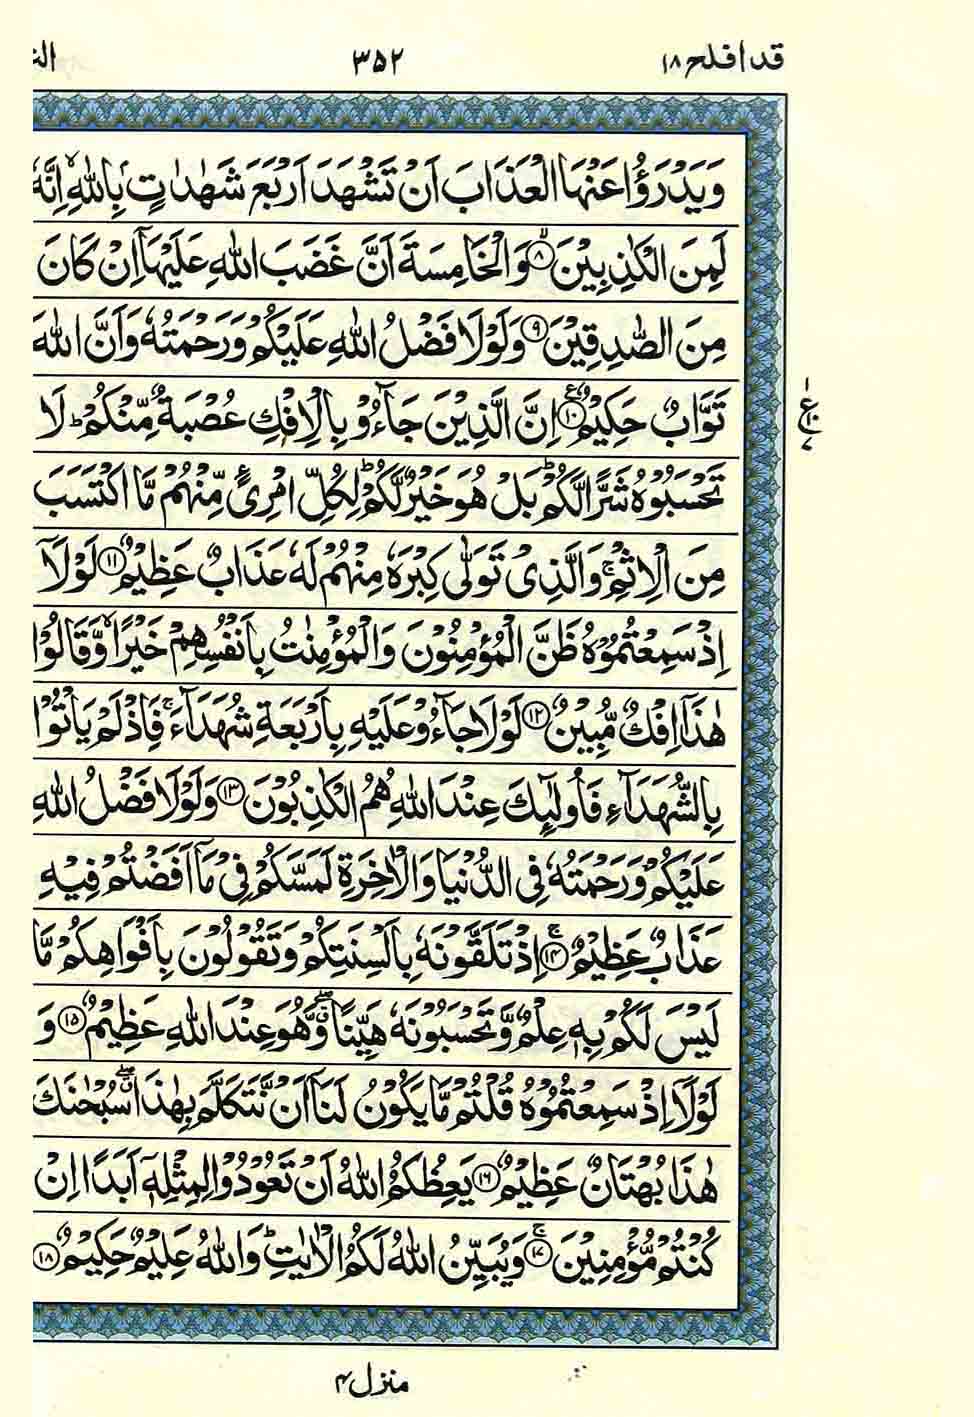 قد افلح ۱۸
۳۵۲
وَيَدْرَؤُا عَنْهَا الْعَذَابَ اَنْ تَشْهَدَ اَرْبَعَ شَهٰدٰتٍۭ بِاللّٰهِ ۙ اِنَّهٗ
لَمِنَ الْكٰذِبِيْنَ ۙ‏﴿۸﴾ وَالْخَامِسَةَ اَنَّ غَضَبَ اللّٰهِ عَلَيْهَاۤ اِنْ كَانَ
مِنَ الصّٰدِقِيْنَ ﴿۹﴾ وَلَوْلَا فَضْلُ اللّٰهِ عَلَيْكُمْ وَرَحْمَتُهٗ وَاَنَّ اللّٰهَ
تَوَّابٌ حَكِيْمٌ ﴿۱۰﴾ اِنَّ الَّذِيْنَ جَآءُوْ بِالْاِفْكِ عُصْبَةٌ مِّنْكُمْ ؕ لَا
تَحْسَبُوْهُ شَرًّا لَّكُمْ ؕ بَلْ هُوَ خَيْرٌ لَّكُمْ ؕ لِكُلِّ امْرِئٍ مِّنْهُمْ مَّا اكْتَسَبَ
مِنَ الْاِثْمِ ۚ وَالَّذِىْ تَوَلّٰى كِبْرَهٗ مِنْهُمْ لَهٗ عَذَابٌ عَظِيْمٌ ﴿۱۱﴾ لَوْلَاۤ
اِذْ سَمِعْتُمُوْهُ ظَنَّ الْمُؤْمِنُوْنَ وَالْمُؤْمِنٰتُ بِاَنْفُسِهِمْ خَيْرًا ۙ وَّقَالُوْا
هٰذَاۤ اِفْكٌ مُّبِيْنٌ ﴿۱۲﴾ لَوْلَا جَآءُوْ عَلَيْهِ بِاَرْبَعَةِ شُهَدَآءَ ۚ فَاِذْ لَمْ يَاْتُوْا
بِالشُّهَدَآءِ فَاُولٰٓئِكَ عِنْدَ اللّٰهِ هُمُ الْكٰذِبُوْنَ ﴿۱۳﴾ وَلَوْلَا فَضْلُ اللّٰهِ
عَلَيْكُمْ وَرَحْمَتُهٗ فِى الدُّنْيَا وَالْاٰخِرَةِ لَمَسَّكُمْ فِىْ مَاۤ اَفَضْتُمْ فِيْهِ
عَذَابٌ عَظِيْمٌ ۚ‏﴿۱۴﴾ اِذْ تَلَقَّوْنَهٗ بِاَلْسِنَتِكُمْ وَتَقُوْلُوْنَ بِاَفْوَاهِكُمْ مَّا
لَيْسَ لَكُمْ بِهٖ عِلْمٌ وَّتَحْسَبُوْنَهٗ هَيِّنًا ۖ وَّهُوَ عِنْدَ اللّٰهِ عَظِيْمٌ ﴿۱۵﴾ وَ
لَوْلَاۤ اِذْ سَمِعْتُمُوْهُ قُلْتُمْ مَّا يَكُوْنُ لَنَاۤ اَنْ نَّتَكَلَّمَ بِهٰذَا ۖ سُبْحٰنَكَ
هٰذَا بُهْتَانٌ عَظِيْمٌ ﴿۱۶﴾ يَعِظُكُمُ اللّٰهُ اَنْ تَعُوْدُوْا لِمِثْلِهٖۤ اَبَدًا اِنْ
كُنْتُمْ مُّؤْمِنِيْنَ ۚ‏﴿۱۷﴾ وَيُبَيِّنُ اللّٰهُ لَكُمُ الْاٰيٰتِ ؕ وَاللّٰهُ عَلِيْمٌ حَكِيْمٌ ﴿۱۸﴾
منزل ۴